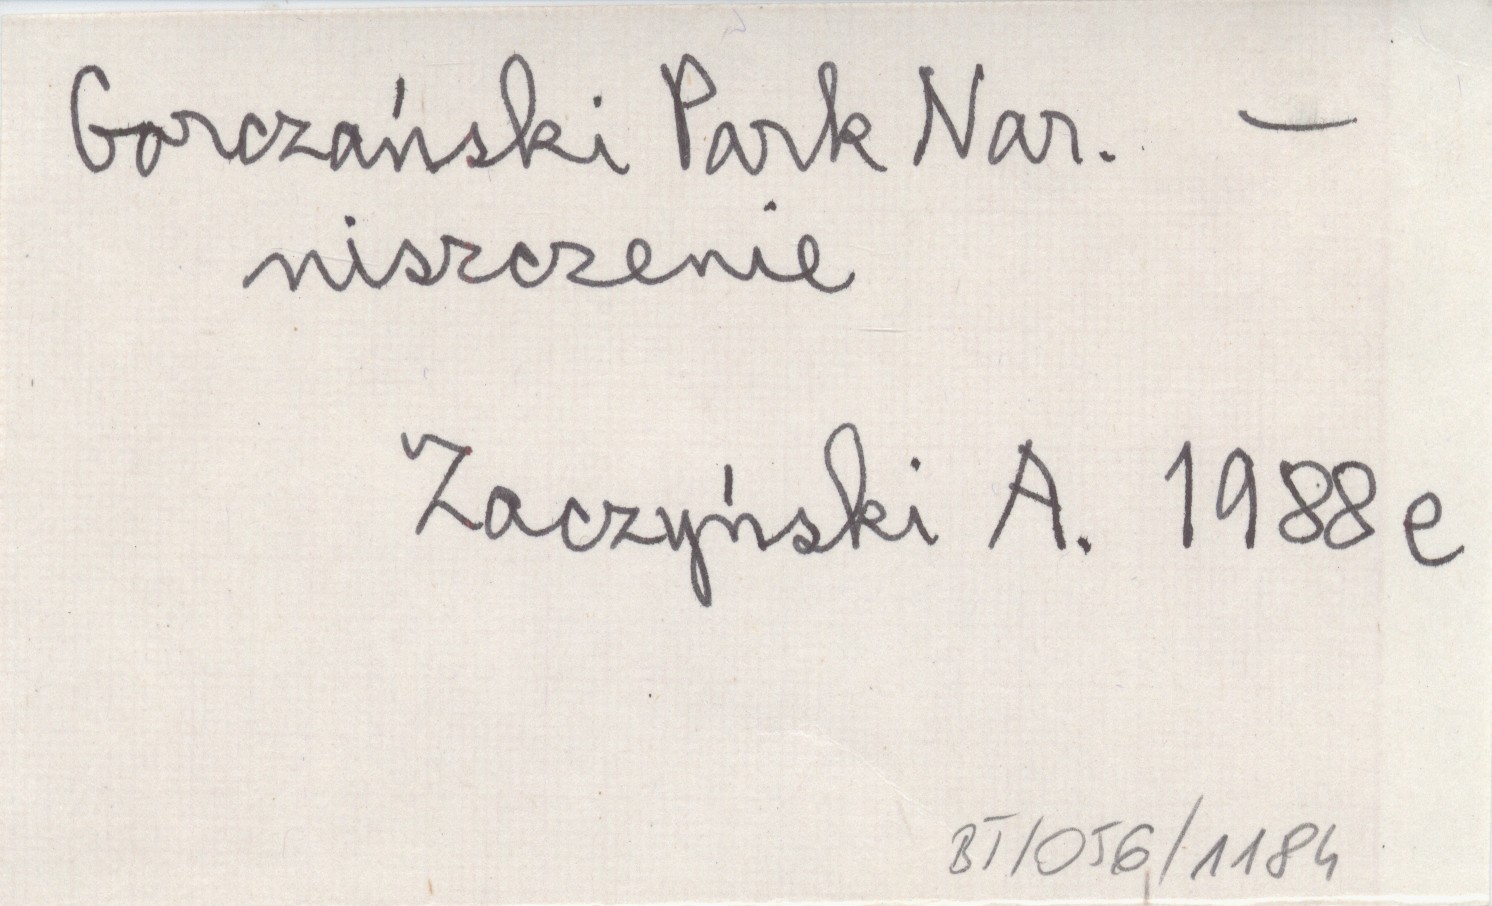 Gorczański Park Nar. —
niszczenie
Zaczyński A. 1988e
BT/056/1184